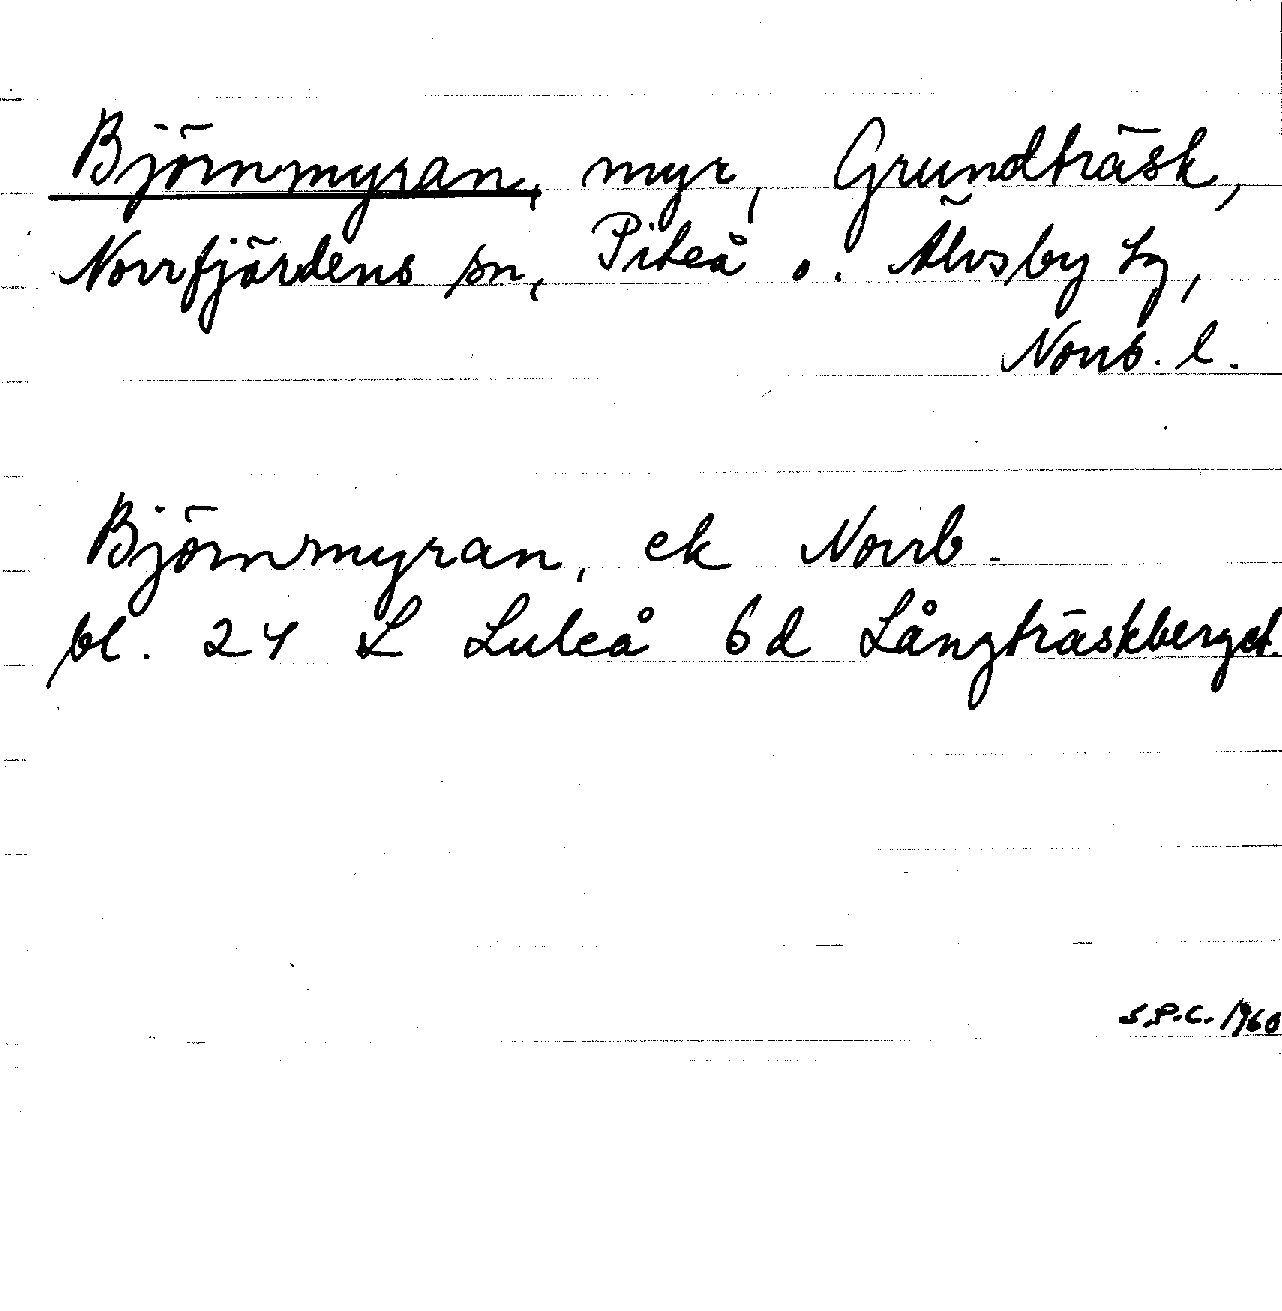 Björnmyran, myr, Grundträsk,
Norrfjärdens sn, Piteå o. Älvsby tg,
Norrb. l.
Björnmyran, ek Norrb.
bl. 24 L Luleå 6d Långträskberget.
S.P.C. 1960